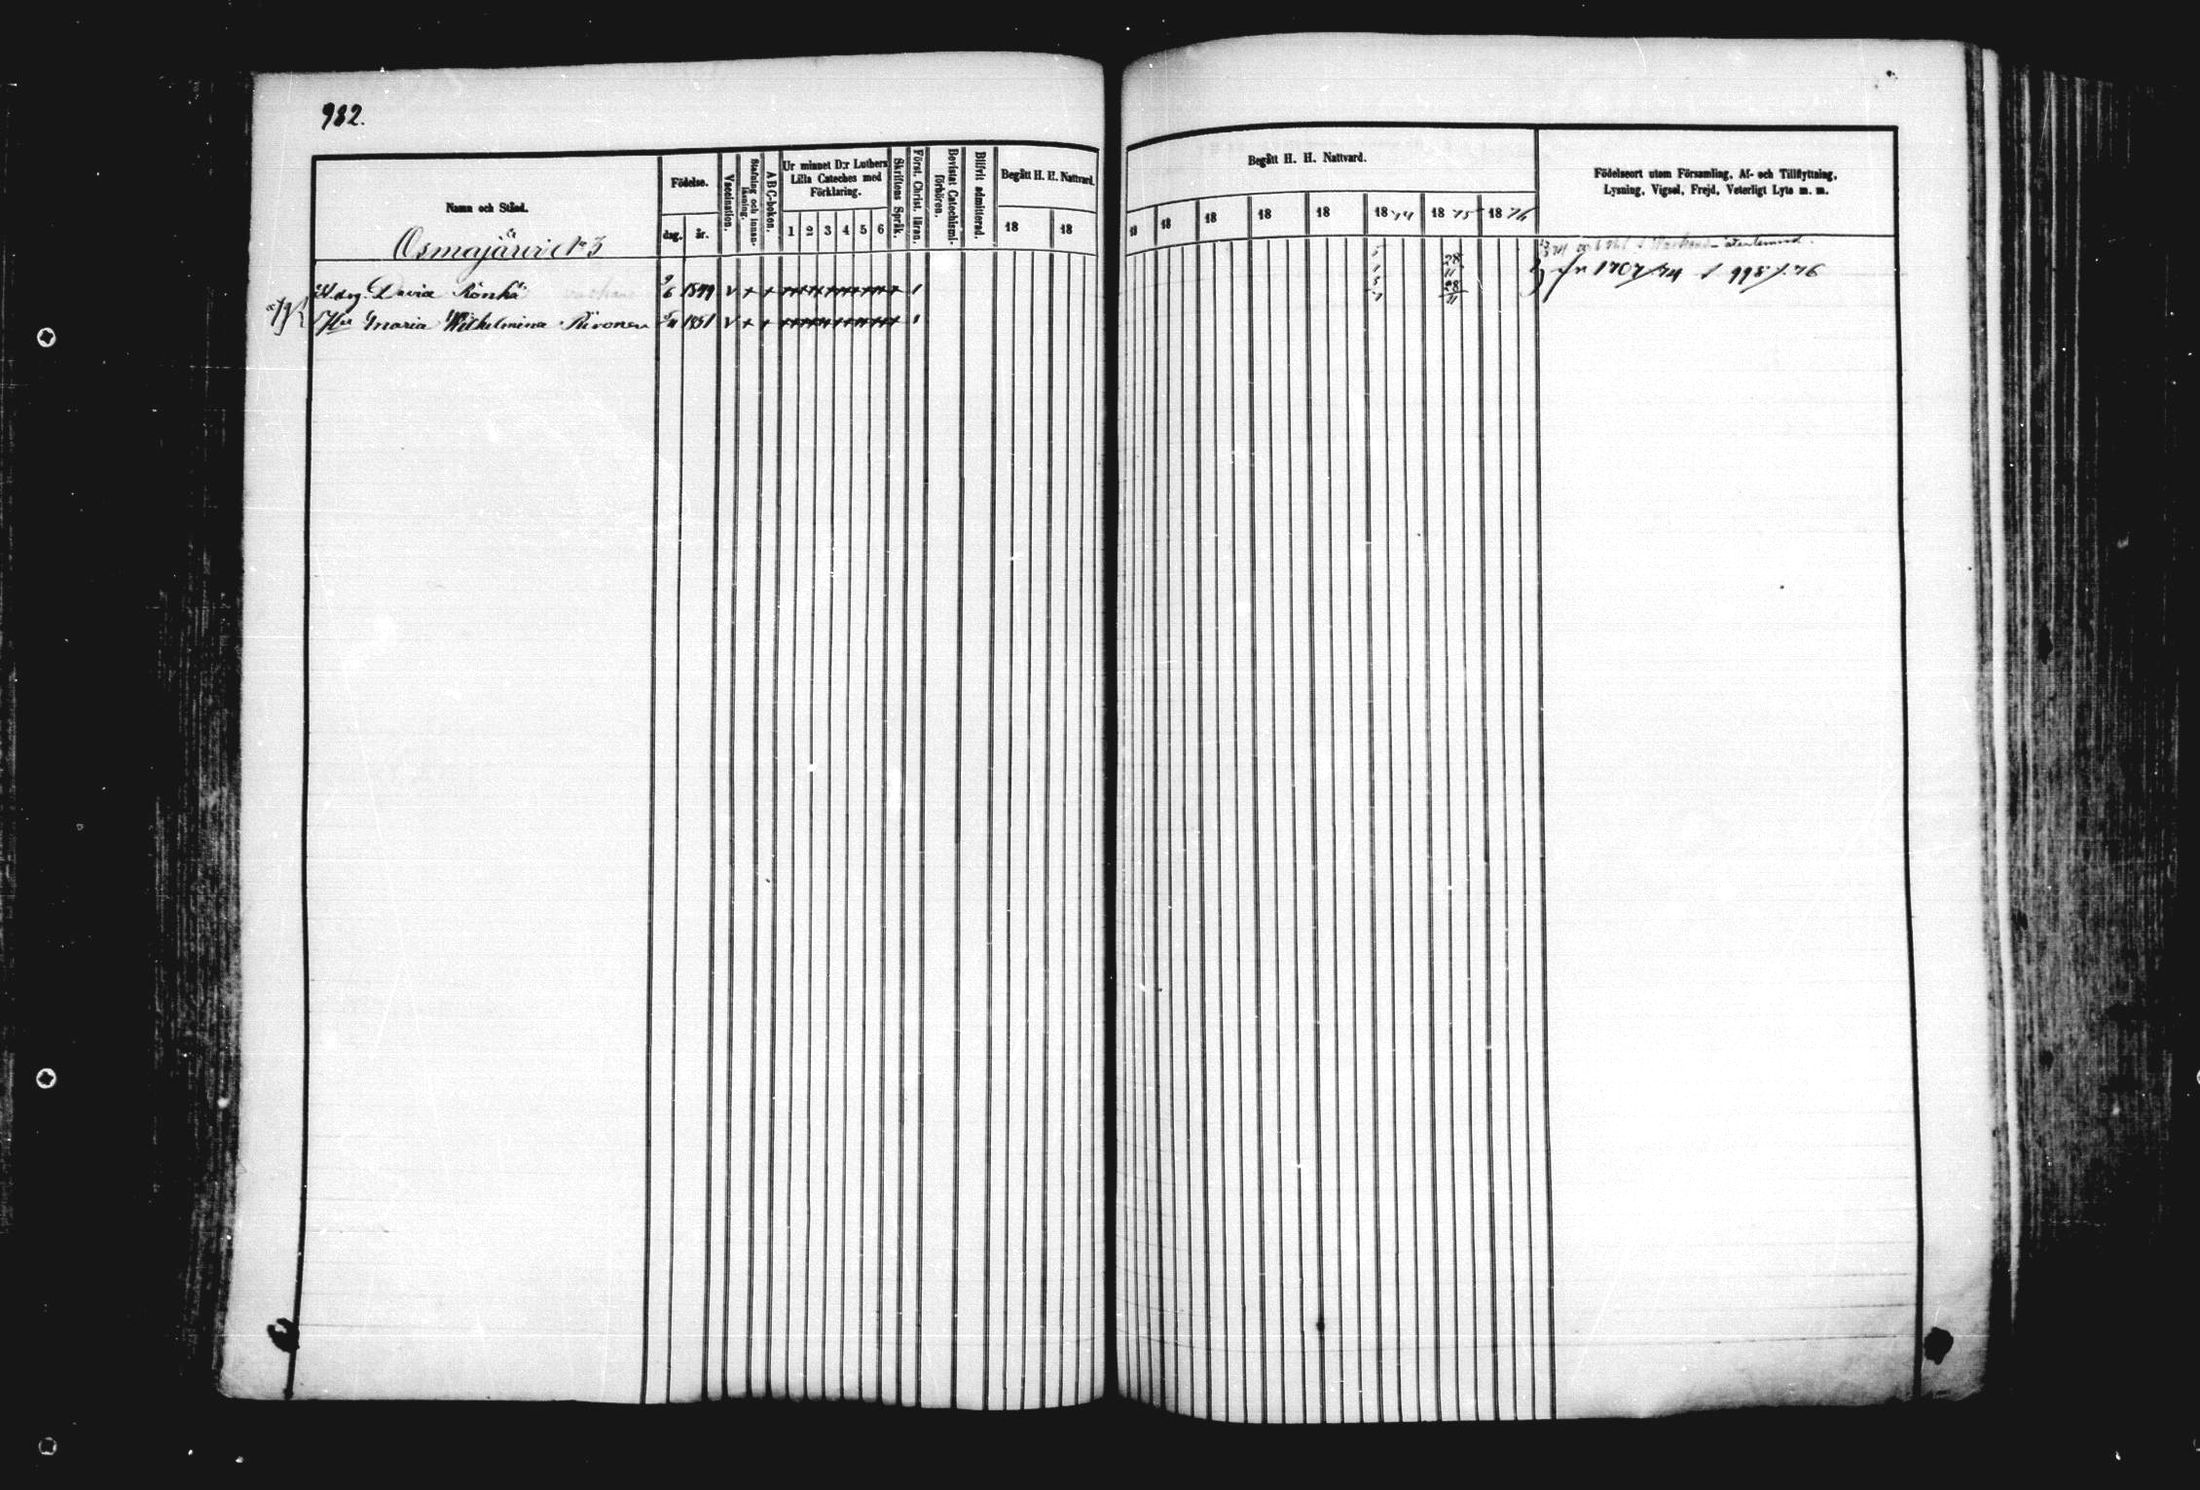 982.
Namn och Stånd.
Födelse.
dag.
år.
Vaccination.
Stafning och Innanläsning.
ABC-boken.
Ur minnet D:r Luthers Lilla Cateches med Förklaring.
1 2 3 4 5 6
Skriftens Språk.
Först. Christ. läran.
Bevistat Catechismiförhören.
Blifvit admitterad.
Begått H. H. Nattvard.
18 18
Osmajärvi № 3
David Rönkä 2/6 1849 v + +
Hu Maria Wilhelmina Piironen 1851 v + +
Begått H. H. Nattvard.
18 18 18 18 18 18 74 18 75 18 76
28
11
28
11
Födelseort utom Församling, Af- och Tillflyttning,
Lysning, Vigsel, Frejd, Veterligt Lyte m. m.
fr 1707/74 / 998/76